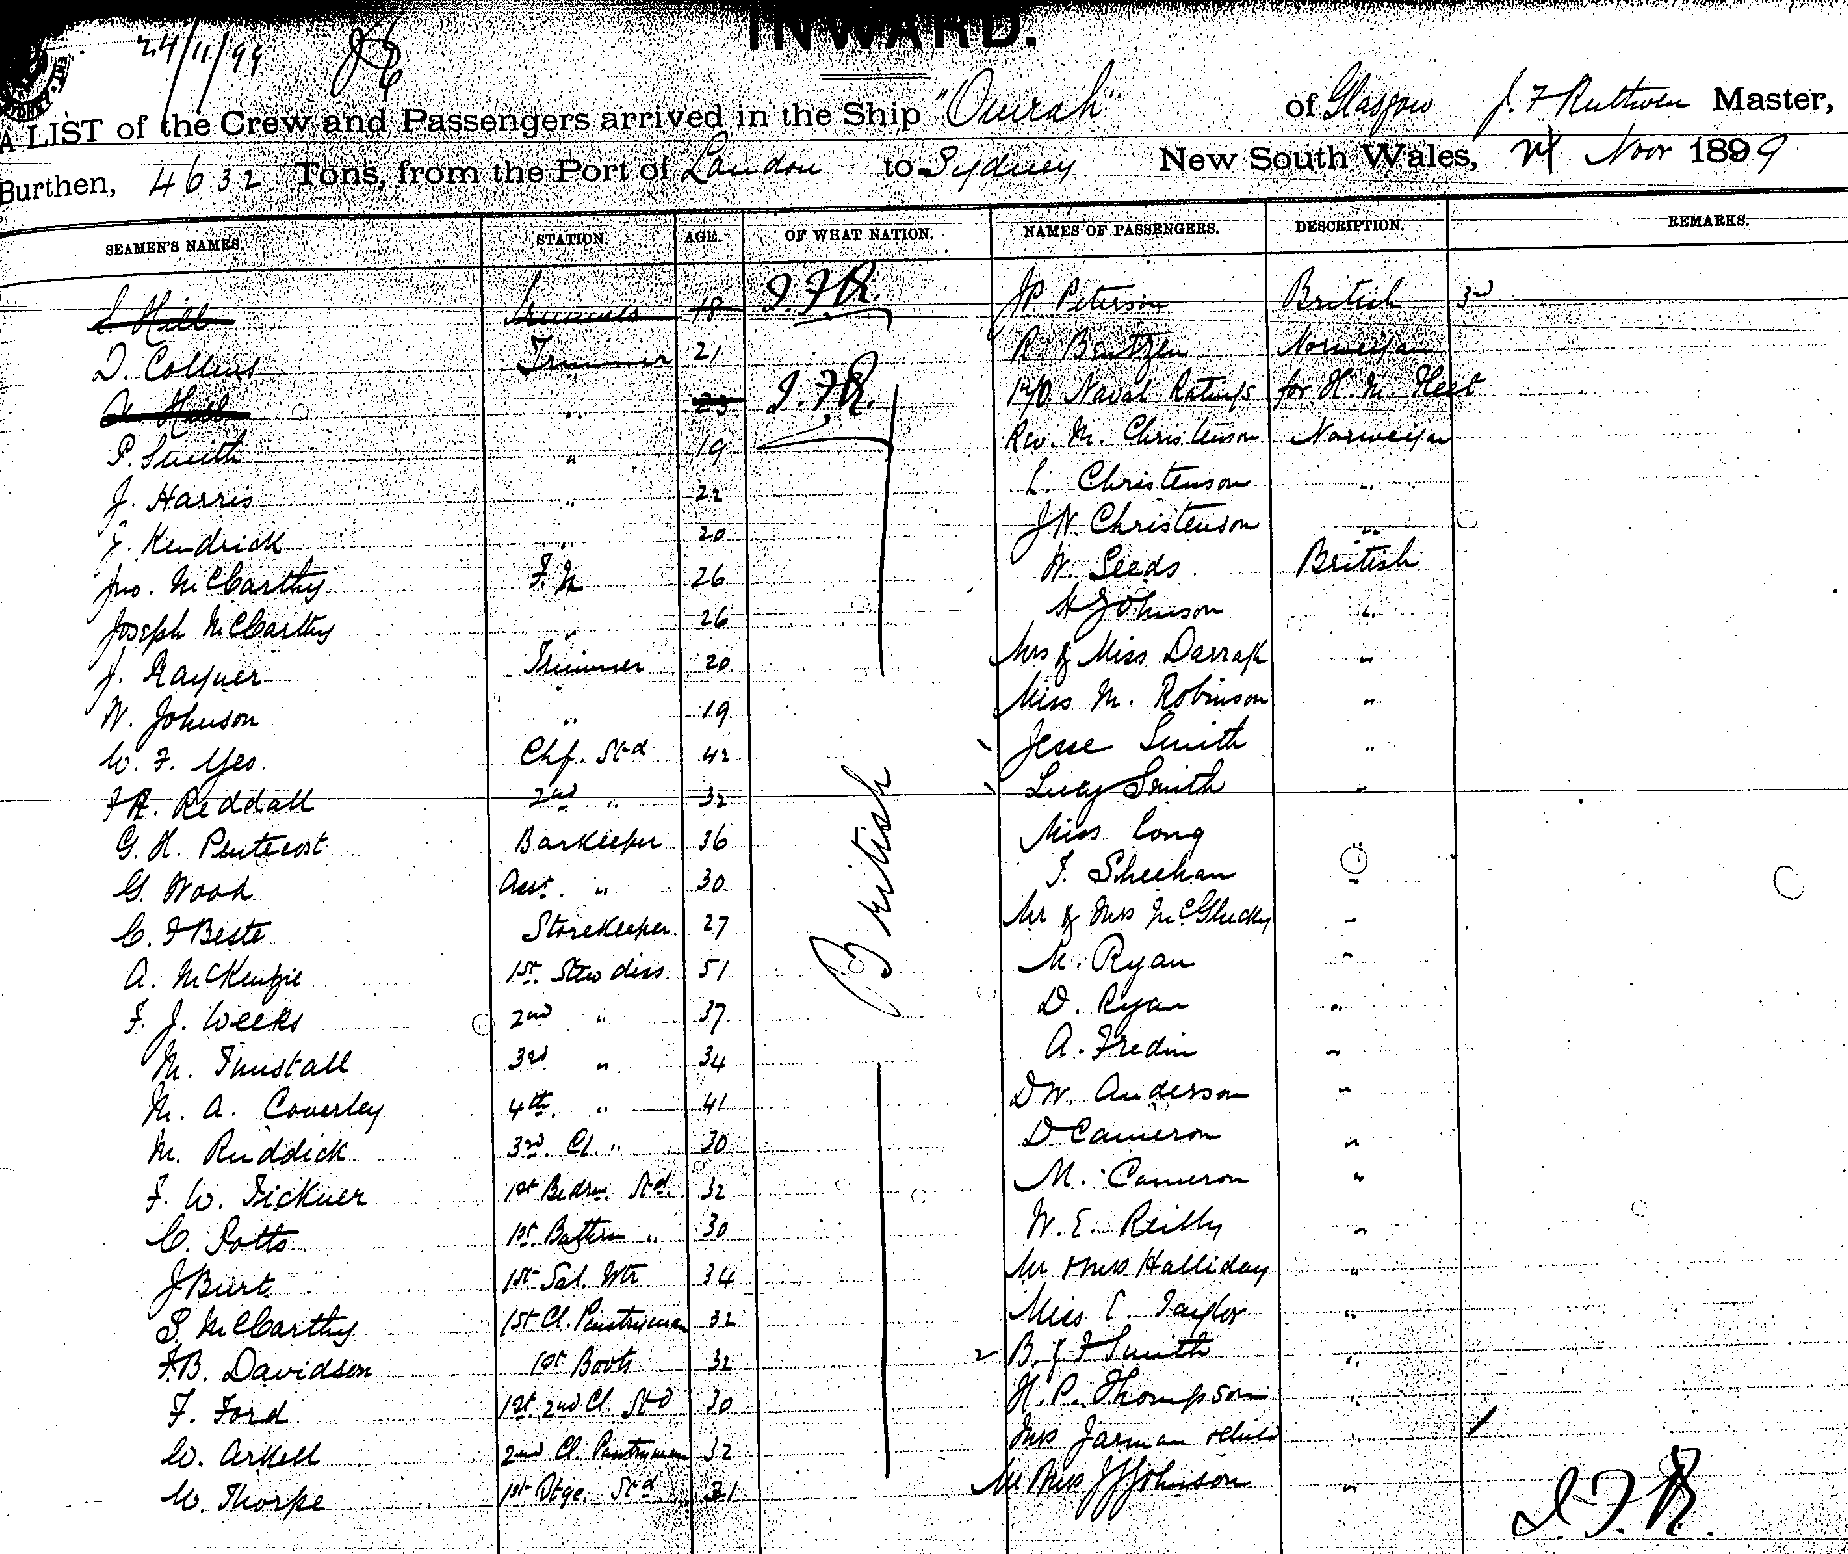 INWARD.
24/11/99
A LIST of the Crew and Passengers arrived in the Ship "Omrah" of Glasgow J. F Ruthven Master,
Burthen, 4632 Tons, from the Port of London to Sydney New South Wales, 24 Novr 1899
SEAMEN'S NAMES. STATION. AGE. OF WHAT NATION. NAMES OF PASSENGERS. DESCRIPTION. REMARKS.
Hill Trimmer 18 J.F.R. JP Peterson British 3rd
D. Collins Trimmer 21 R. Bentzen Norwegian
Hall " 23 J.F.R. 170 Naval Ratings for H.M. Fleet
P. Smith " 19 Rev. M. Christenson Norwegian
J. Harris " 22 L. Christenson "
J. Kendrick " 20 J N Christenson "
Jno. McCarthy F.M 26 W. Seeds British
Joseph McCarthy " 26 A Johnson "
J. Rayner Trimmer 20 Mrs & Miss Darragh "
W. Johnson " 19 Miss M. Robinson "
W. F. Yeo. Chf. Std 42 Jesse Smith "
F A. Reddall 2nd " 32 Lucy Smith "
G. H. Pentecost Barkeeper 36 Miss Long "
G. Wood Asst. " 30 T. Sheehan "
C. F Beste Storekeeper 27 Mr & Mrs McGlucky "
A. McKenzie 1st. Stewdess 51 M. Ryan "
F. J. Weeks 2nd " 37 D. Ryan "
M. Tunstall 3rd " 34 A. Fredin "
M. A. Coverley 4th " 41 D W. Anderson "
M. Ruddick 3rd. Cl. " 30 D Cameron "
F. W. Tickner 1st Bedrm. Std. 32 M. Cameron "
C. Potts 1st. Bathrm " 30 W. E. Reilly "
J Burt 1st Sal. Wtr 34 Mr & Mrs Halliday "
S. McCarthy 1st Cl. Pantryman 32 Miss C. Taylor "
F.B. Davidson 1st Boots 32 B. & F Smith "
F. Ford 1st. 2nd Cl. Std 30 H. P. Thompson "
W. Arkell 2nd Cl. Pantryman 32 Mrs Jarman & child "
W. Thorpe 1st Stge. Std 21 Mr Mrs J J Johnson "
British
J.F.R.